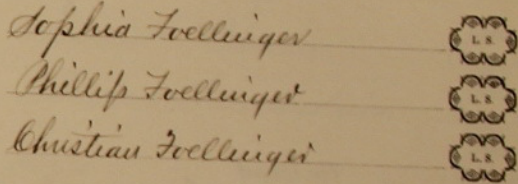 Sophia Foellinger L. S.
Phillip Foellinger L. S.
Christian Foellinger L. S.